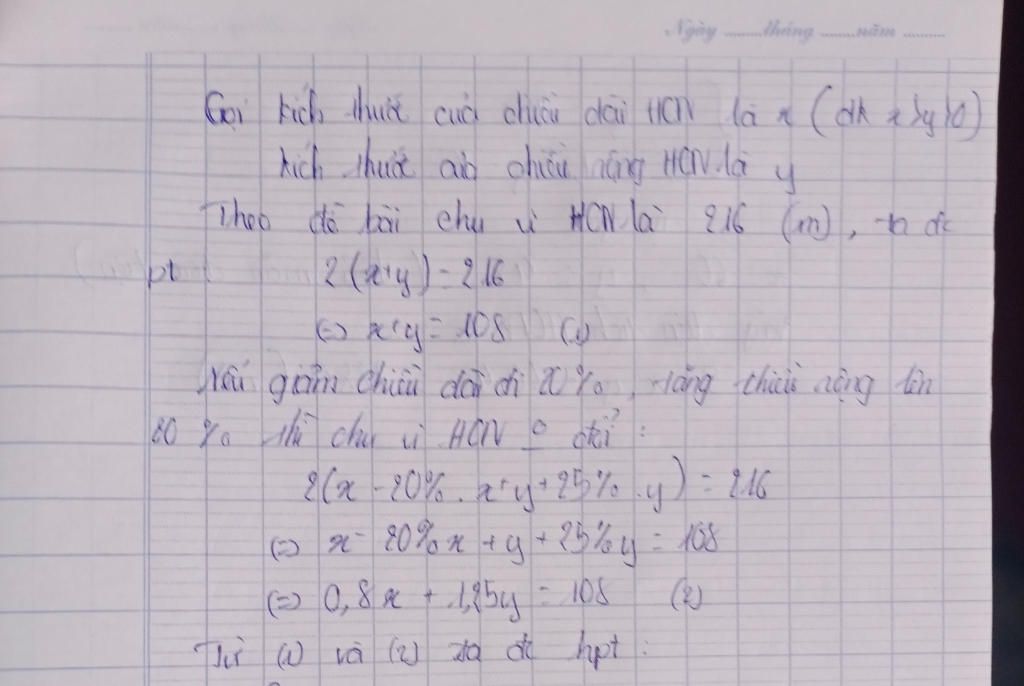 Ngày ........tháng ........năm ..........
Gọi kích thước của chiều dài HCN là x (đk x>y>0)
kích thước của chiều rộng HCN là y
Theo đề bài chu vi HCN là 216 (m), ta đc
pt 2(x+y) = 216
(=) x+y = 108 (1)
Nếu giảm chiều dài đi 20%, tăng chiều rộng lên
% thì chu vi HCN đổi :
2(x - 20%. x+y+25% .y) = 216
(=) x - 20%x + y + 25%y = 108
(=) 0,8x + 1,25y = 108 (2)
Từ (1) và (2) ta đc hpt :